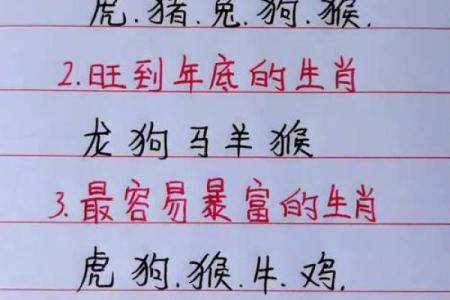 虎.猪.兔.狗.猴.
2.旺到年底的生肖
龙狗马羊猴
3.最容易暴富的生肖
虎狗.猴.牛.鸡.